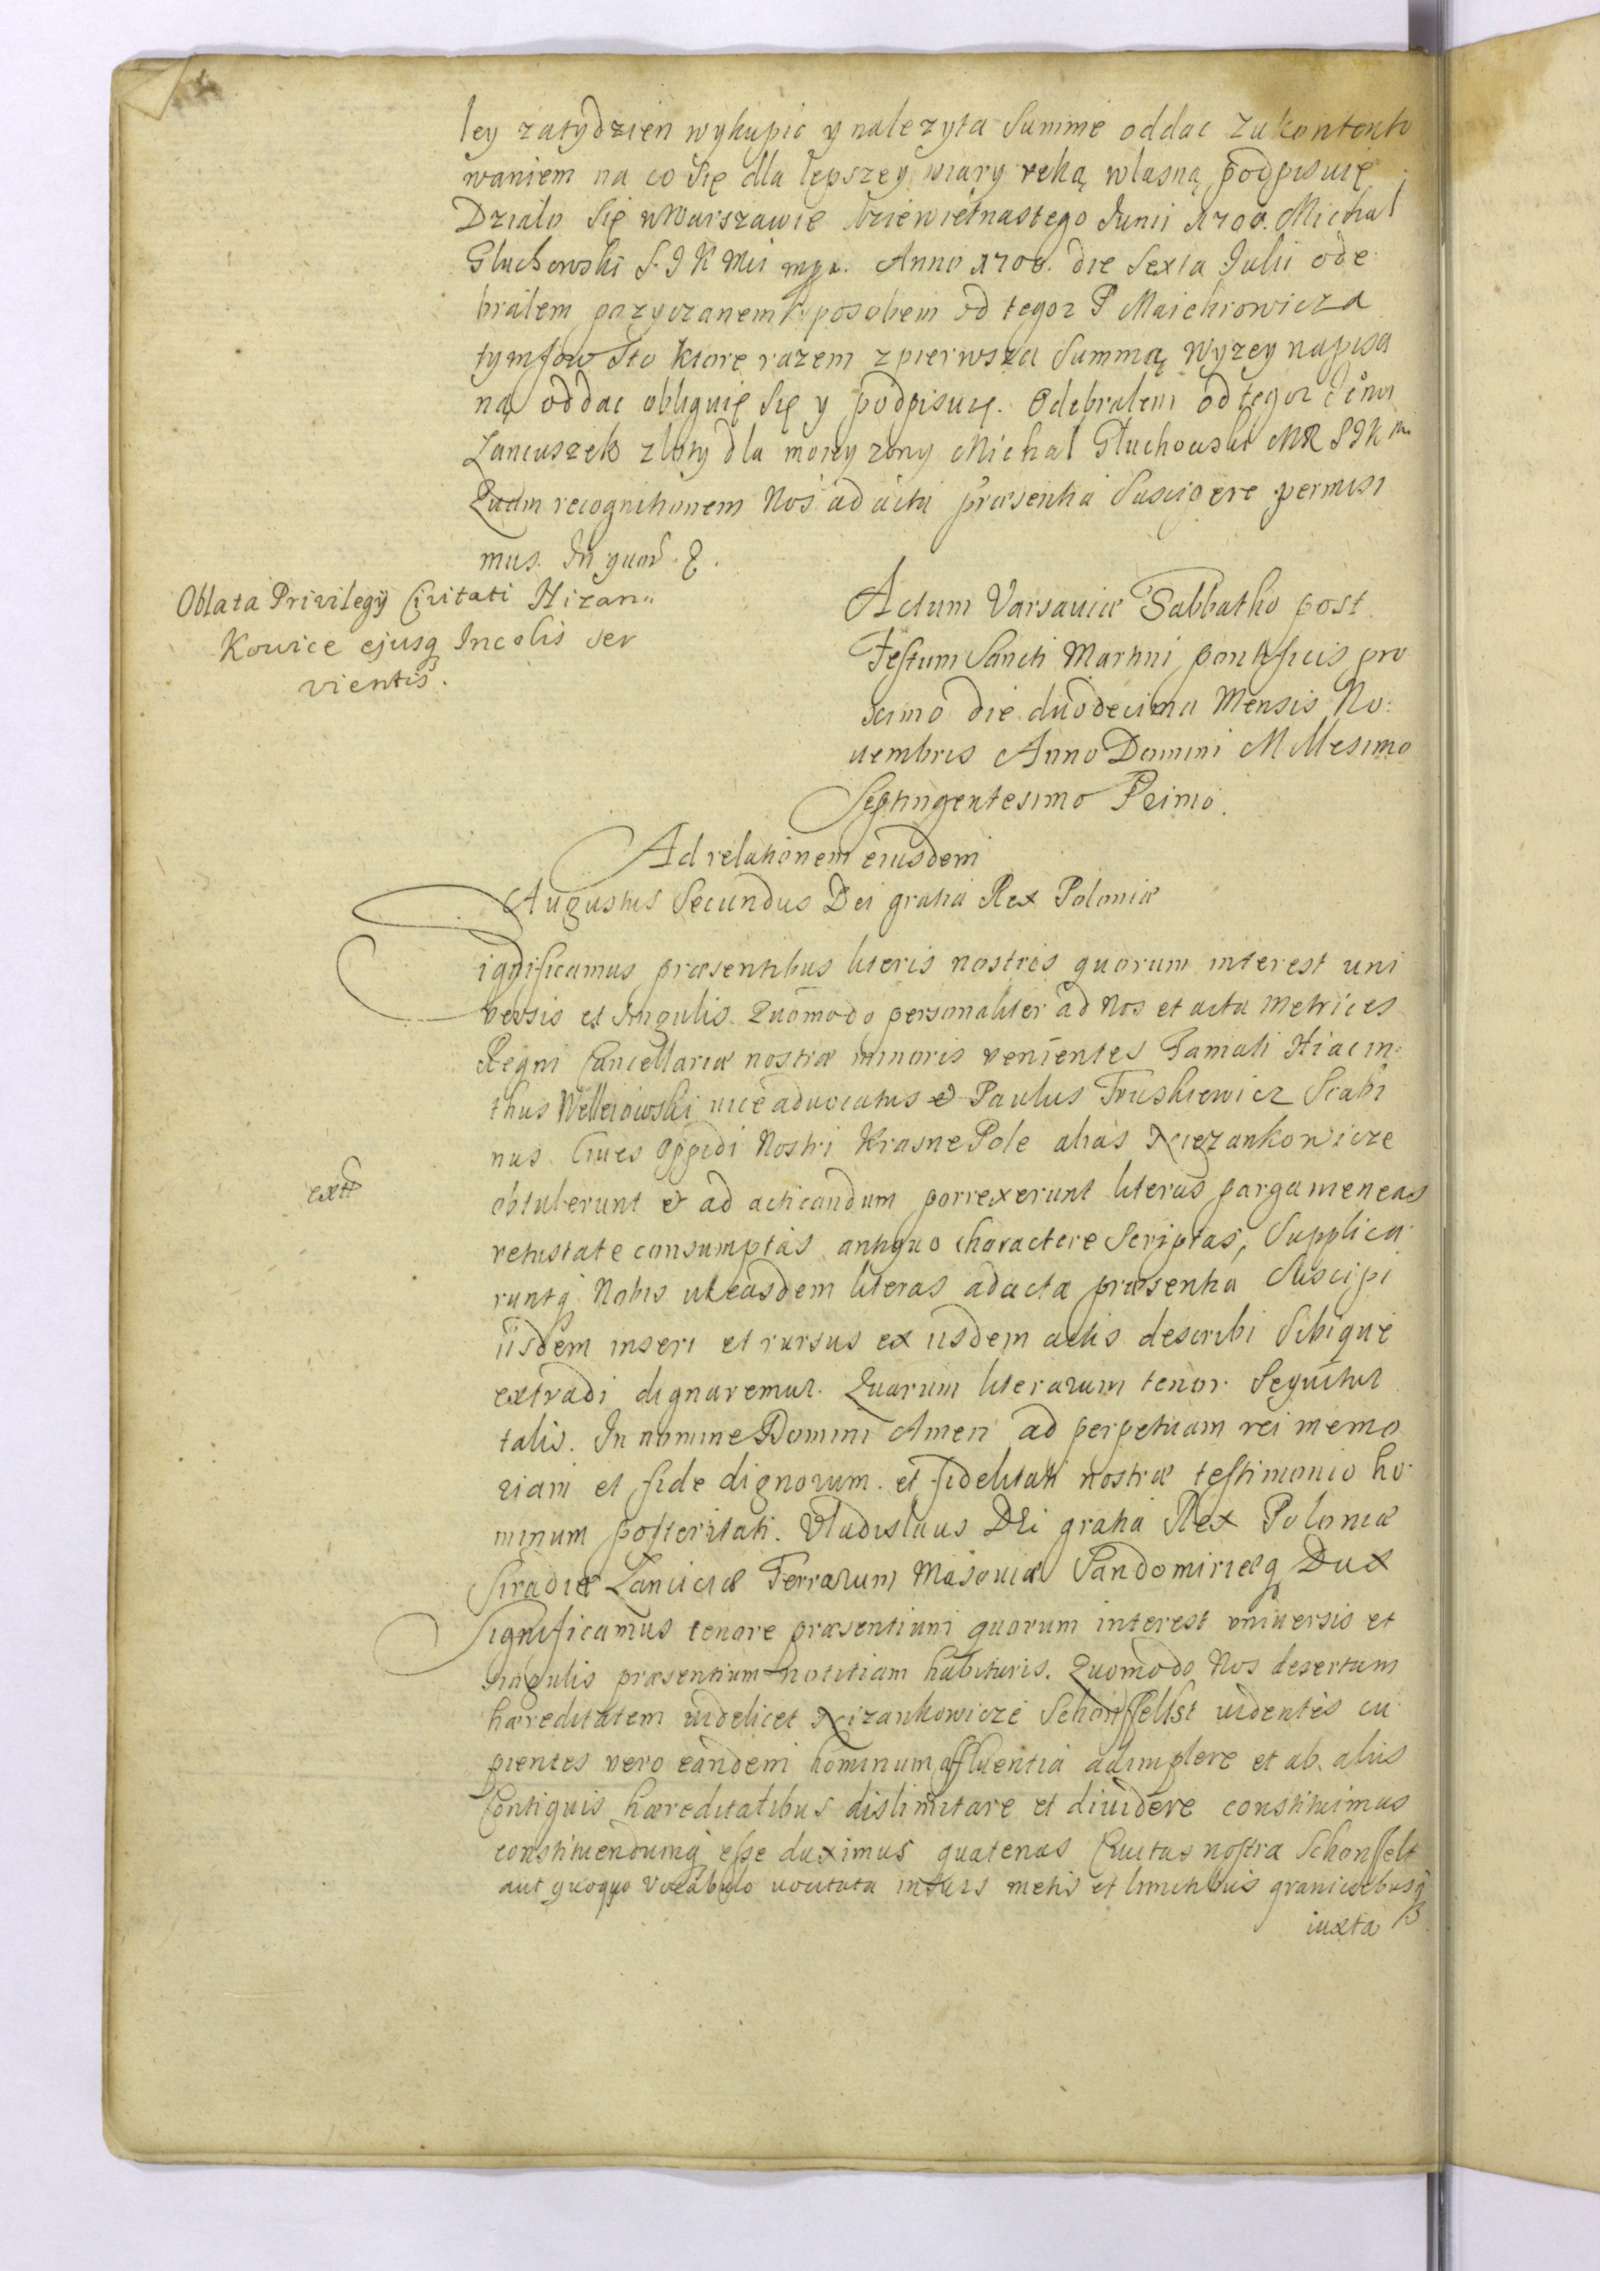 ley zatydzien wykupic y nalezyta Summe oddac zukontento
waniem na co Się dla lepszey wiary reką własną podpisuię
Działo Się wWarszawie dziewietnastego Junii 1700. Michal
Głuchowski S. J K Mci mpr. Anno 1700. die Sexta Julii ode
brałem pozyczanem sposobem od tegoz P Maichrowicza
tymfow Sto ktore razem zpierwszą Summą wyzey napisa
ną oddac obliguię Się y podpisuię. Odebrałem od tegoz
Lancuszek złoty dla moiey zony Michal Głuchowski MR SJKM
Quam recognitionem Nos ad acta præsentia Suscipere permisi
mus. In quor.
Oblata Privilegij Civitati Hizan"
Kowice ejusq Incolis ser
vientis.
Actum Varsaviæ Sabbatho post
Festum Sancti Martini pontificis pro
ximo die duodecima Mensis No:
uembris Anno Domini Millesimo
Septingentesimo Primo.
Ad relationem eiusdem
Augustus Secundus Dei gratia Rex Poloniæ
Significamus præsentibus literis nostris quorum interest uni
versis et singulis. Quomodo personaliter ad Nos et acta Metrices
Regni Cancellariæ nostræ minoris venientes Famati Hiacin:
thus Welleiowski viceaduocatus & Paulus Truskiewicz Scabi
nus. Ciues Oppidi Nostri KrasnePole alias Xiezankowicze
extt
obtulerunt & ad acticandum porrexerunt literas pargameneas
vetustate consumptas, antiquo charactere Scriptas, Supplica
runtq Nobis ut easdem literas ad acta præsentia Suscipi
iisdem inseri et rursus ex iisdem actis describi Sibique
extradi dignaremur. Quarum literarum tenor Sequitur
talis. In nomine Domini Amen ad perpetuam rei memo
riam et fide dignorum. et fidelitati nostræ testimonio ho
minum posteritati. Vladislaus Dei gratia Rex Poloniæ
Siradiæ Lanciciæ Terrarum Masouiæ Sandomiriæq Dux
Significamus tenore præsentium quorum interest vniuersis et
singulis præsentium notitiam habituris. Quomodo Nos desertam
hæreditatem videlicet Xizankowicze Schonffellst uidentes cu
pientes vero eandem hominum affluentia adimplere et ab aliis
Contiguis hæreditatibus dislimitare et diuidere constituimus
constituendumq esse duximus quatenus Ciuitas nostra Schonffelt
aut quoquo vocabulo uocitata in suis metis et limitibus granicebusq
iuxta